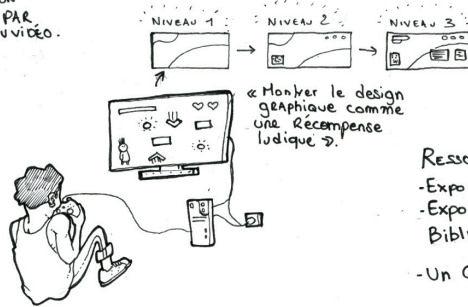 PAR
UVIDÉO.
NIVEAU 1
NIVEAU 2
NIVEAU 3
« Montrer le design
graphique comme
une Récompense
ludique ».
RESSO
-Expo
-Expo
Bibl
-Un C